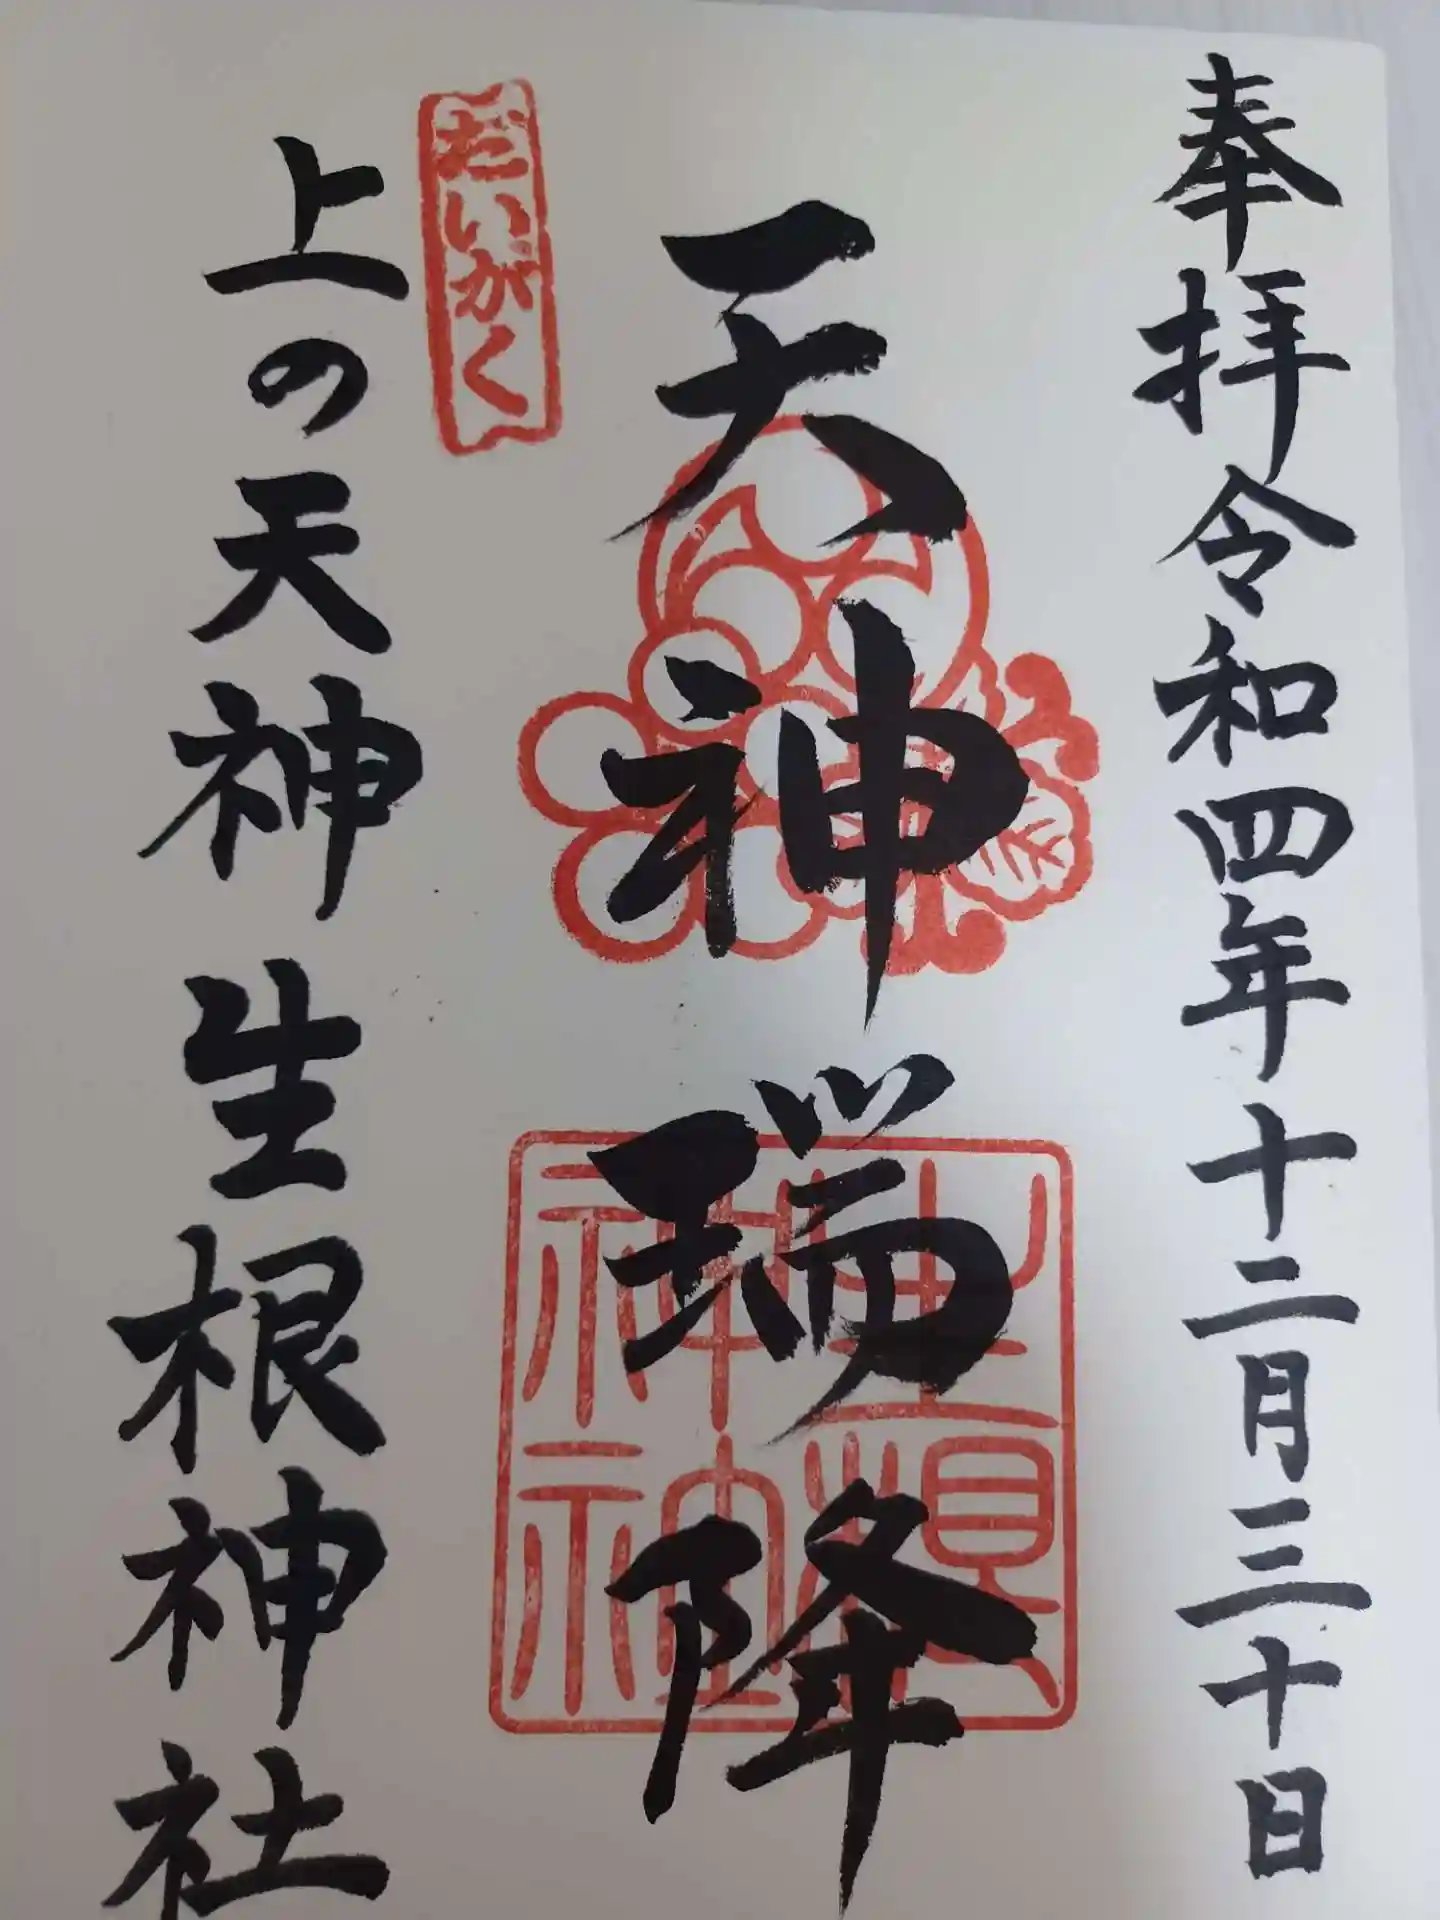 奉拝 令和四年十二月三十日
天神瑞降
だいがく
上の天神 生根神社
生根神社